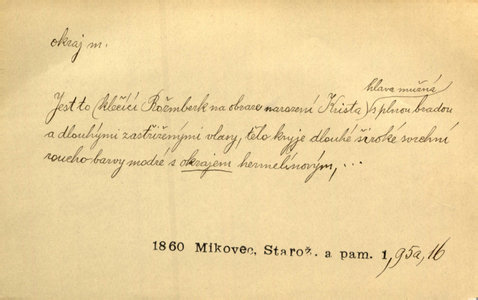 okraj m.
hlava mužná
Jest to (klečící Rožmberk na obraze narození Krista) s plnou bradou
a dlouhými zastřiženými vlasy, tělo kryje dlouhé široké svrchní
roucho barvy modré s okrajem hermelínovým, ...
1860 Mikovec, Starož. a pam. 1, 95a, 16